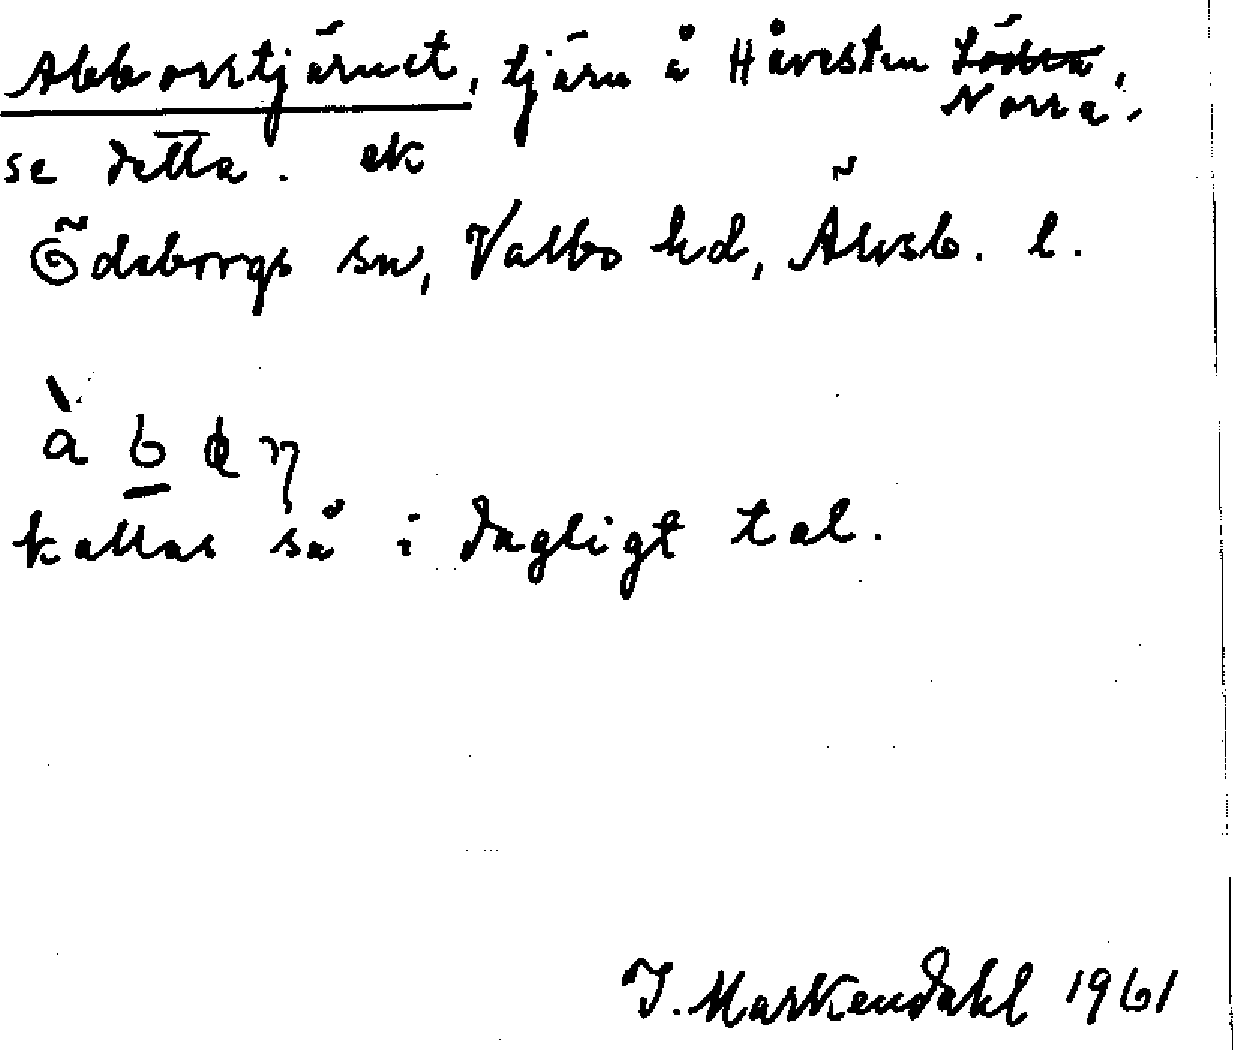 Abborrtjärnet, tjärn å Håvesten Södra,
Norra.
se detta. ek
Ödeborgs sn, Valbo hd, Älvsb. l.
kallas så i dagligt tal.
J. Markendahl 1961